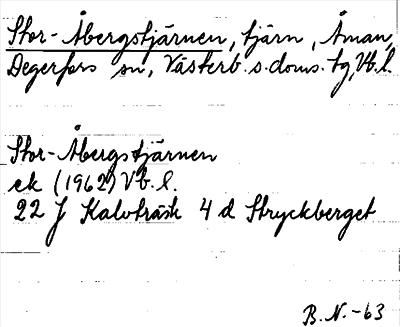 Stor-Åbergstjärnen, tjärn, Åman,
Degerfors sn, Västerb. s. doms. tg, Vb. l.
Stor-Åbergstjärnen
ek (1962) Vb. l.
22 J Kalvträsk 4 d Stryckberget
B. N. -63